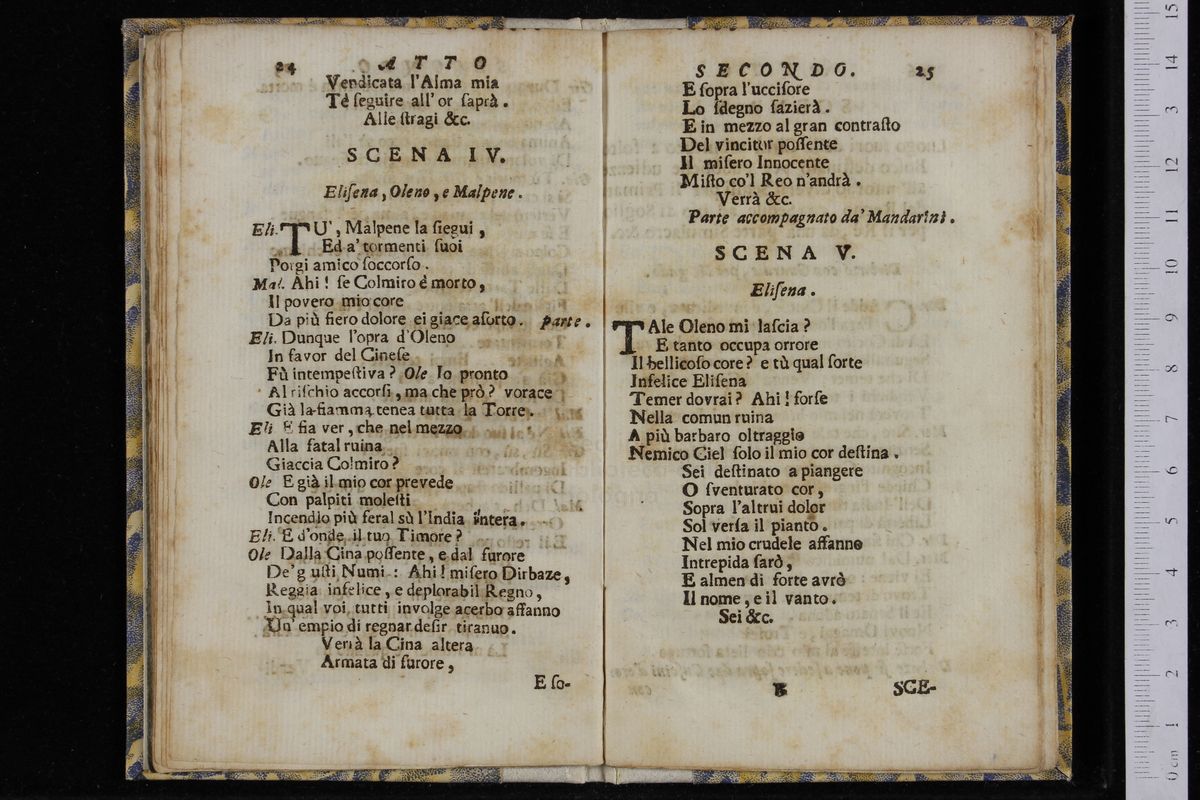 24 ATTO
Vendicata l'Alma mia
Tè ſeguire all' or ſaprà.
Alle ſtragi &c.
SCENA IV.
Eliſena, Oleno, e Malpene.
Eli. TU', Malpene la ſiegui,
Ed a' tormenti ſuoi
Porgi amico ſoccorſo.
Mal. Ahi! ſe Colmiro è morto,
Il povero mio core
Da più fiero dolore ei giace aſorto. parte.
Eli. Dunque l'opra d'Oleno
In favor del Cineſe
Fù intempeſtiva? Ole Io pronto
Al riſchio accorſi, ma che prò? vorace
Già la fiamma tenea tutta la Torre.
Eli E fia ver, che nel mezzo
Alla fatal ruina
Giaccia Colmiro?
Ole E già il mio cor prevede
Con palpiti moleſti
Incendio più feral sù l'India intera.
Eli. E d'onde il tuo Timore?
Ole Dalla Cina poſſente, e dal furore
De'g uſti Numi: Ahi! miſero Dirbaze,
Reggia infelice, e deplorabil Regno,
In qual voi tutti involge acerbo affanno
Un' empio di regnar deſir tiranuo.
Verrà la Cina altera
Armata di furore,
E ſo-
SECONDO. 25
E ſopra l'ucciſore
Lo ſdegno ſazierà.
E in mezzo al gran contraſto
Del vincitor poſſente
Il miſero Innocente
Miſto co'l Reo n'andrà.
Verrà &c.
Parte accompagnato da' Mandarini.
SCENA V.
Eliſena.
TAle Oleno mi laſcia?
E tanto occupa orrore
Il bellicoſo core? e tù qual ſorte
Infelice Eliſena
Temer dovrai? Ahi! forſe
Nella comun ruina
A più barbaro oltraggio
Nemico Ciel ſolo il mio cor deſtina.
Sei deſtinato a piangere
O ſventurato cor,
Sopra l'altrui dolor
Sol verſa il pianto.
Nel mio crudele affanno
Intrepida ſarò,
E almen di forte avrò
Il nome, e il vanto.
Sei &c.
B SCE-
15
14
13
12
11
10
9
8
7
6
5
4
3
2
1
0 cm